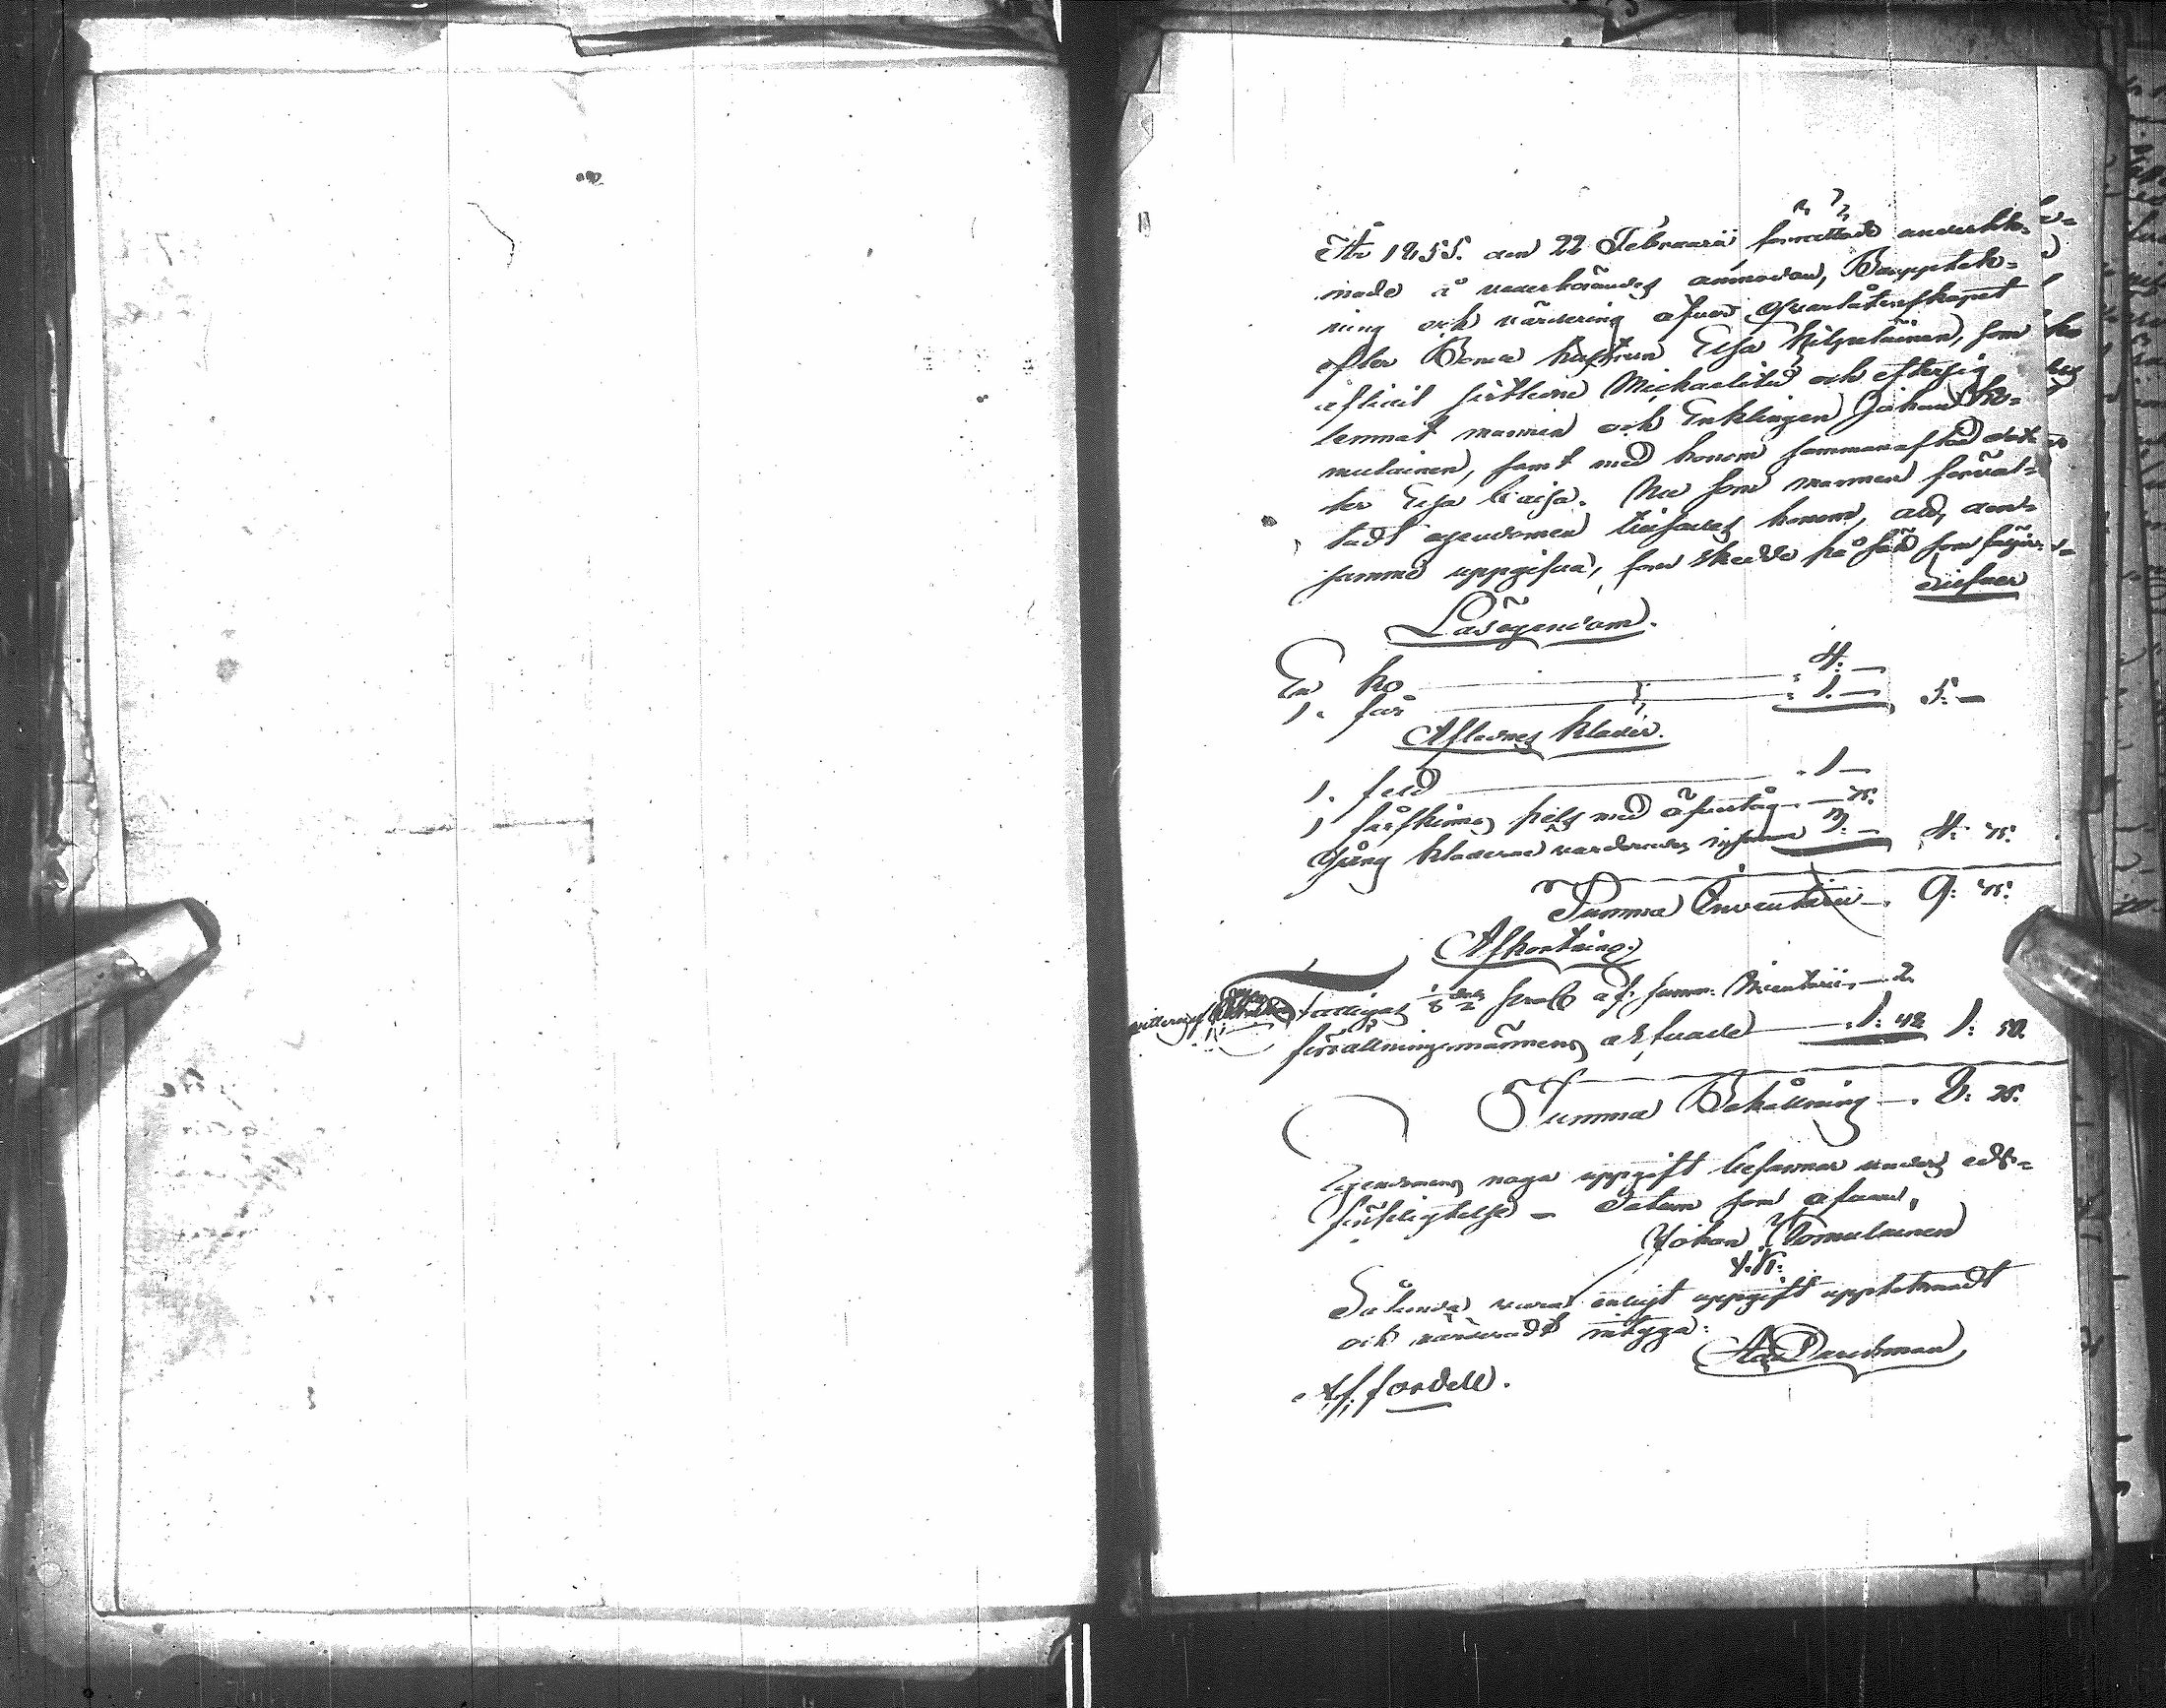 År 1855. den 22 Februarii förrättade underteck-
nade å vederbörandes anmodan, Bouppteck-
ning och värdering öfver qvarlåtenskapet
efter Bonde hustrun Elsa Kilpeläinen, som
aflidit sistledne Michaelitid och eftersig
lemnat mannen och Enklingen Johan Ko-
mulainen, samt med honom sammanaflad dot-
ter Elsa Caisa. Nu som mannen förval-
tadt egendomen tillsades honom, att den-
samma uppgifva, som skedde på sätt som följer.
Silfver
Lösegendom.
En ko 4: —
1. får 1. — 5: —
Aflednes kläder.
1. feld 1 —
1 fårskinns pels med öfvertåg — 75.
Gång kläderne värderades 3: — 4: 75.
Summa Inventarii 9: 75.
Afkortning.
fattigas 1/8 proC af Summ. Inventarii — 2
förrättningsmännens arfvode 1: 48 1: 50.
Summa Behållning — 8: 25.
Egendomens noga uppgift beframar under eds-
förpligtelse — Datum som ofvan,
Johan Komulainen
Sålunda vara enligt uppgift upptecknadt
och värderadt intyga: